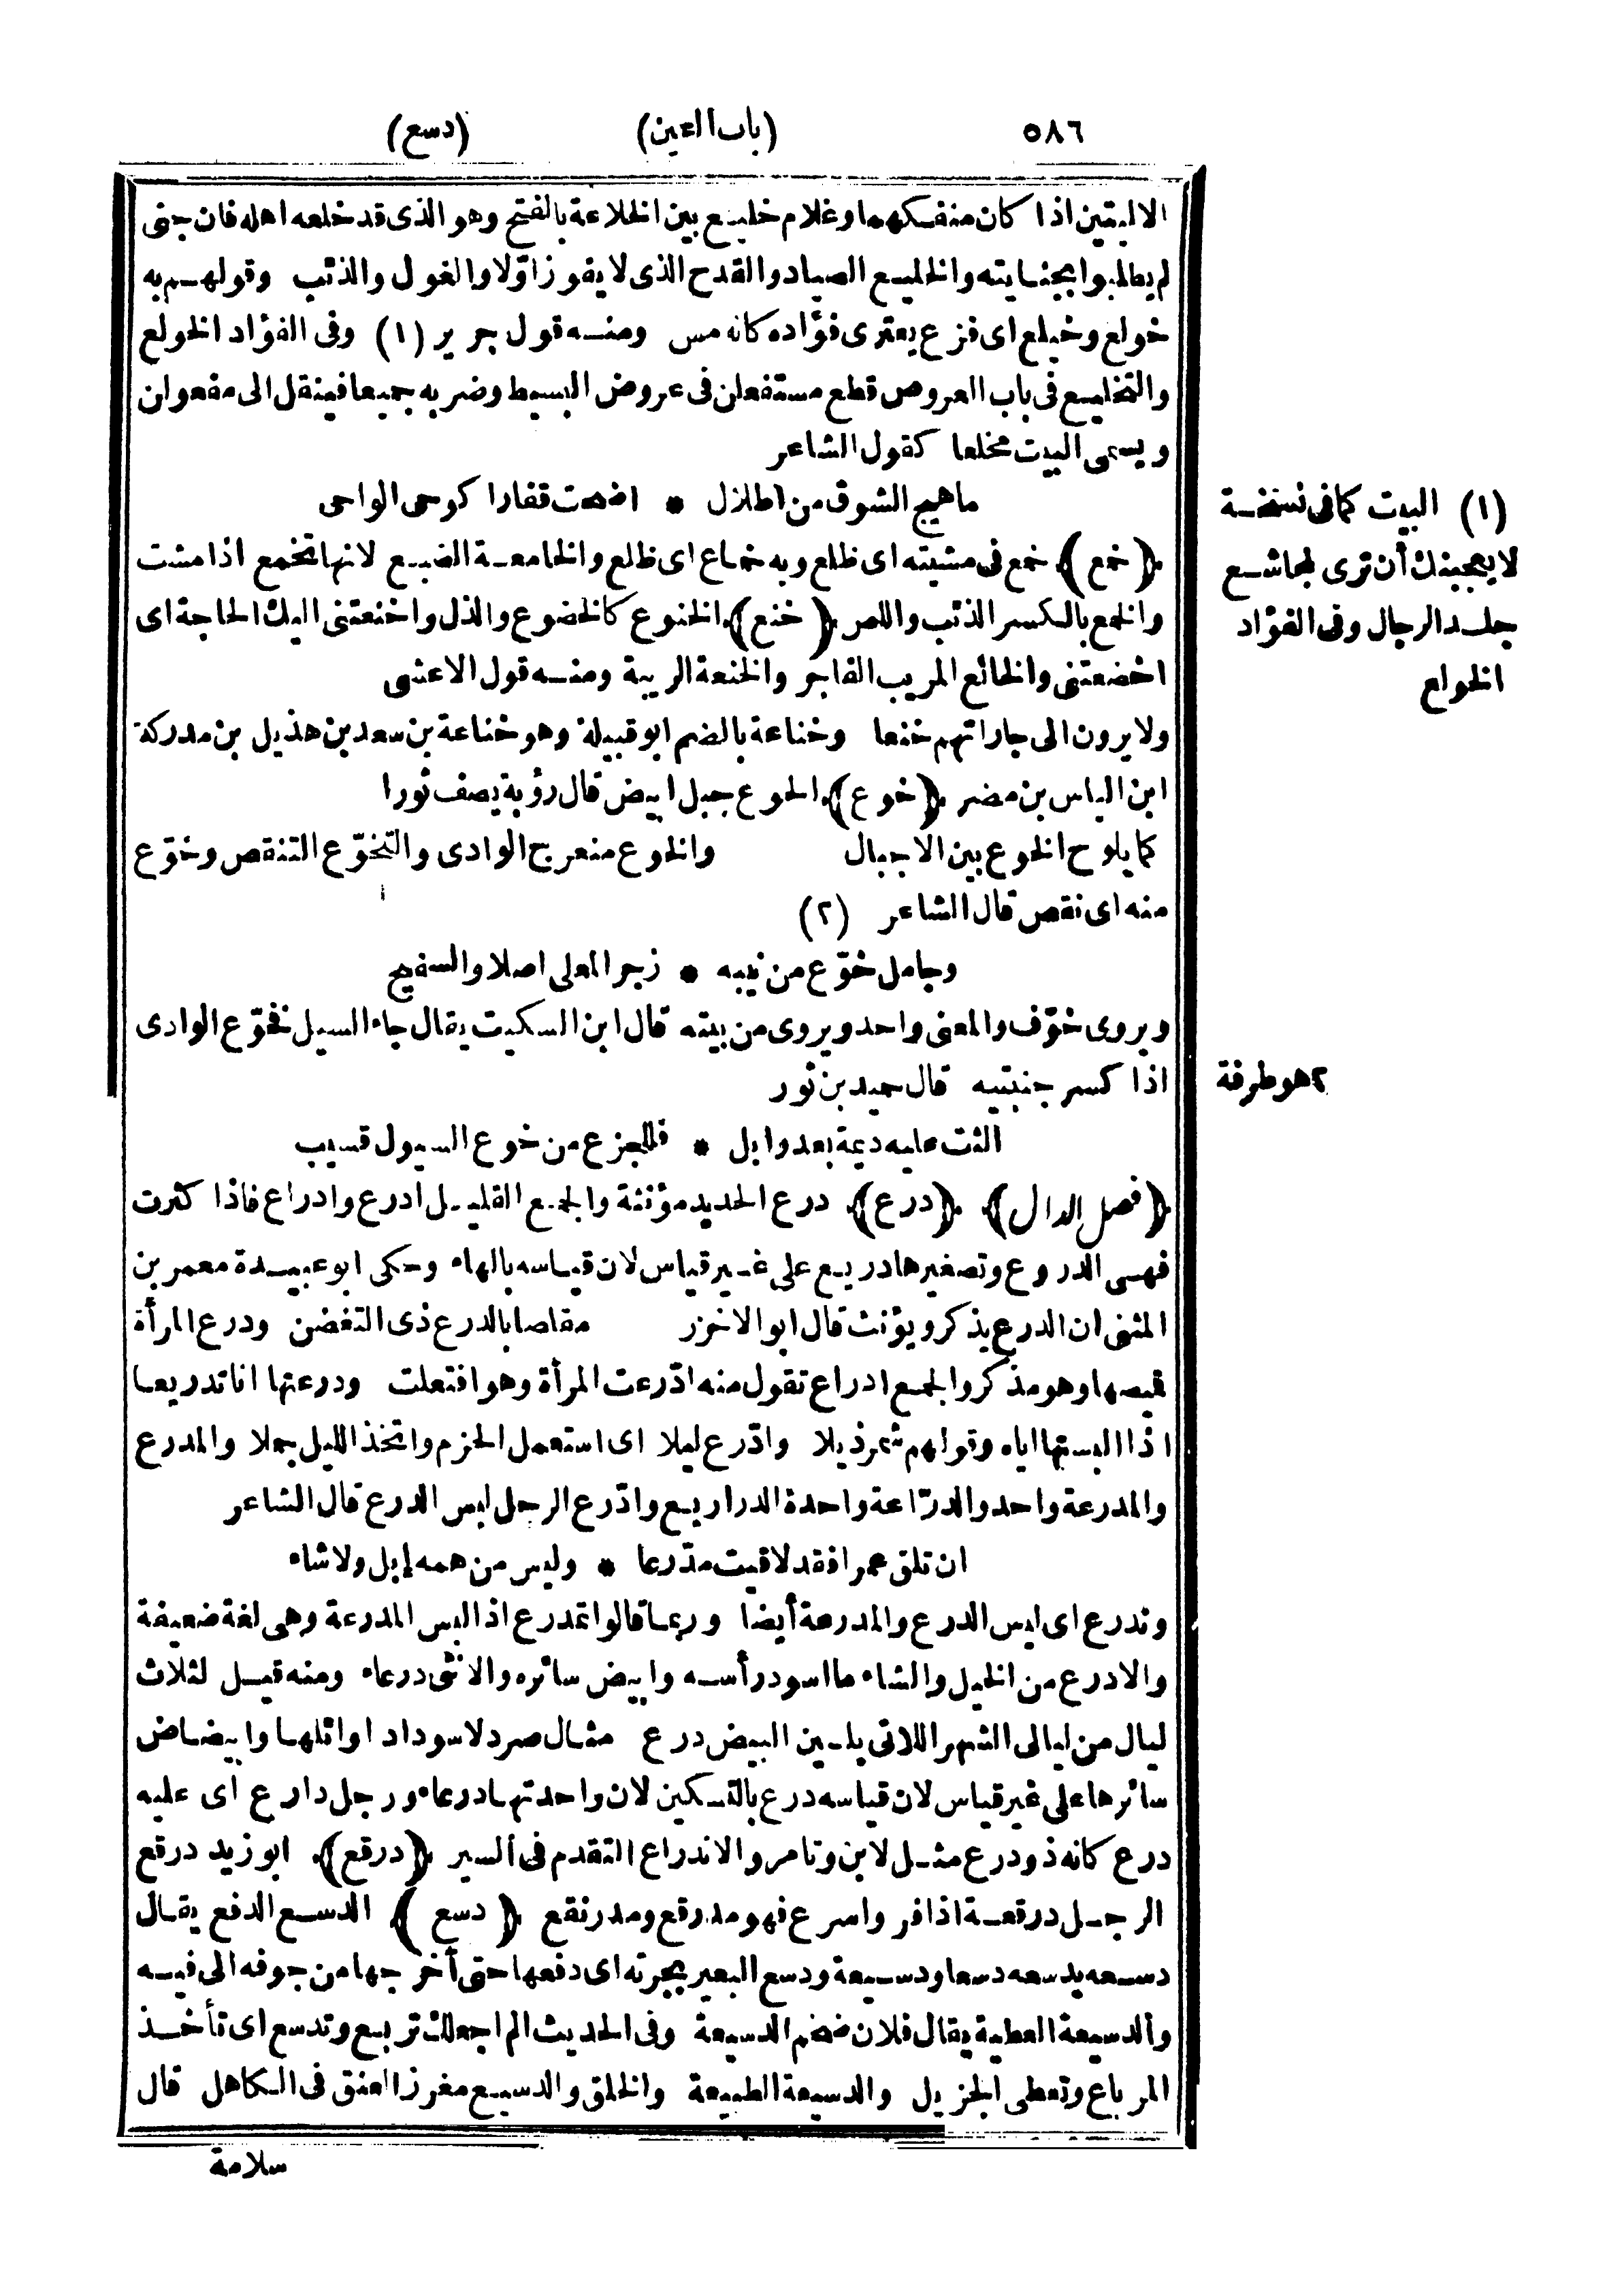 ٥٨٦ (باب العين) (دسع)
الاليتين اذا كان منفكهما وغلام خليع بين الخلاعة بالفتح وهو الذى قد خلعه اهله فان جنى
لم يطلبوا بجنايته والخليع الصياد والقدح الذى لا يفوز اوّلا والغول والذئب وقولهم به
خولع وخيلع اى فزع يعترى فؤاده كانه مس ومنه قول جرير (١) وفى الفؤاد الخولع
والتخليع فى باب العروض قطع مستفعلن فى عروض البسيط وضربه جميعا فينقل الى مفعولن
ويسمى البيت مخلعا كقول الشاعر
ما هيج الشوق من اطلال * اضحت قفارا كوحى الواحى
﴿خمع﴾ خمع فى مشيته اى ظلع وبه خماع اى ظلع والخامعة الضبع لانها تخمع اذا مشت
والخمع بالكسر الذئب واللص ﴿خنع﴾ الخنوع كالخضوع والذل واخنعتنى اليك الحاجة اى
اخضعتنى والخانع المريب الفاجر والخنعة الريبة ومنه قول الاعشى
ولا يرون الى جاراتهم خنعا وخناعة بالضم ابو قبيلة وهو خناعة بن سعد بن هذيل بن مدركة
ابن الياس بن مضر ﴿خوع﴾ الخوع جبل ابيض قال رؤبة يصف ثورا
كما يلوح الخوع بين الاجبال والخوع منعرج الوادى والتخوّع التنقص وخوّع
منه اى نقص قال الشاعر (٢)
وجامل خوّع من نيبه * زجر المعلى اصلا والسفيح
ويروى خوّف والمعنى واحد ويروى من بيته قال ابن السكيت يقال جاء السيل فخوّع الوادى
اذا كسر جنبتيه قال حميد بن ثور
الثت عليه ديمة بعد وابل * فللجزع من خوع السيول قسيب
﴿فصل الدال﴾ ﴿درع﴾ درع الحديد مؤنثة والجمع القليل ادرع وادراع فاذا كثرت
فهى الدروع وتصغيرها دريع على غير قياس لان قياسه بالهاء وحكى ابو عبيدة معمر بن
المثنى ان الدرع يذكر ويؤنث قال ابو الاخزر مقلصا بالدرع ذى التغضن ودرع المرأة
قميصها وهو مذكر والجمع ادراع تقول منه ادّرعت المرأة وهو افتعلت ودرعتها انا تدريعا
اذا البستها اياه وقولهم شمر ذيلا وادّرع ليلا اى استعمل الحزم واتخذ الليل جملا والمدرع
والمدرعة واحد والدرّاعة واحدة الدراريع وادّرع الرجل لبس الدرع قال الشاعر
ان تلق عمرا فقد لاقيت مدّرعا * وليس من همه إبل ولا شاء
وتدرع اى لبس الدرع والمدرعة أيضا وربما قالوا تمدرع اذا لبس المدرعة وهى لغة ضعيفة
والادرع من الخيل والشاء ما اسود رأسه وابيض سائره والانثى درعاء ومنه قيل لثلاث
ليال من ليالى الشهر اللاتى يلين البيض درع مثال صرد لاسوداد اوائلها وابيضاض
سائرها على غير قياس لان قياسه درع بالتسكين لان واحدتها درعاء ورجل دارع اى عليه
درع كانه ذو درع مثل لابن وتامر والاندراع التقدم فى السير ﴿درقع﴾ ابو زيد درقع
الرجل درقعة اذا فر واسرع فهو مدرقع ومدرنقع ﴿دسع﴾ الدسع الدفع يقال
دسعه يدسعه دسعا ودسيعة ودسع البعير بجرته اى دفعها حتى أخرجها من جوفه الى فيه
والدسيعة العطية يقال فلان ضخم الدسيعة وفى الحديث الم اجعلك تربع وتدسع اى تأخذ
المرباع وتعطى الجزيل والدسيعة الطبيعة والخلق والدسيع مغرز العنق فى الكاهل قال
سلامة
(١) البيت كما فى نسخة
لا يعجبنك أن ترى لمجاشع
جلد الرجال وفى الفؤاد
الخولع
٢ هو طرفة